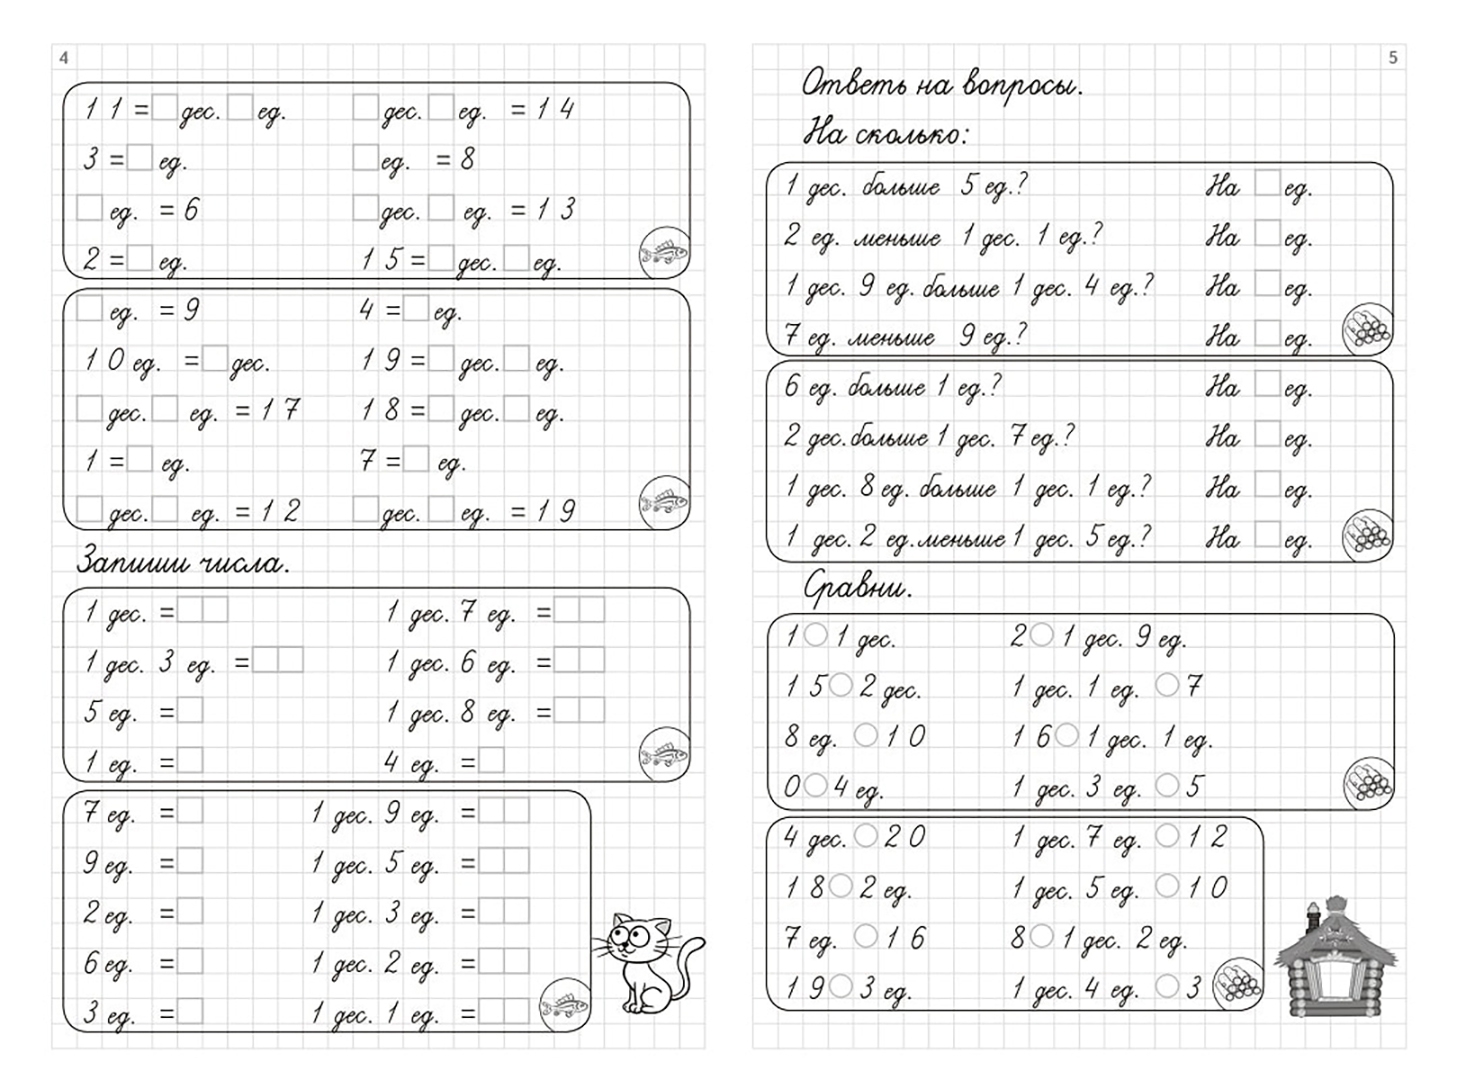 4
11 = □ дес. □ ед. □ дес. □ ед. = 14
3 = □ ед. □ ед. = 8
□ ед. = 6 □ дес. □ ед. = 13
2 = □ ед. 15 = □ дес. □ ед.
□ ед. = 9 4 = □ ед.
10 ед. = □ дес. 19 = □ дес. □ ед.
□ дес. □ ед. = 17 18 = □ дес. □ ед.
1 = □ ед. 7 = □ ед.
□ дес. □ ед. = 12 □ дес. □ ед. = 19
Запиши числа.
1 дес. = □□ 1 дес. 7 ед. = □□
1 дес. 3 ед. = □□ 1 дес. 6 ед. = □□
5 ед. = □ 1 дес. 8 ед. = □□
1 ед. = □ 4 ед. = □
7 ед. = □ 1 дес. 9 ед. = □□
9 ед. = □ 1 дес. 5 ед. = □□
2 ед. = □ 1 дес. 3 ед. = □□
6 ед. = □ 1 дес. 2 ед. = □□
3 ед. = □ 1 дес. 1 ед. = □□
5
Ответь на вопросы.
На сколько:
1 дес. больше 5 ед.? На □ ед.
2 ед. меньше 1 дес. 1 ед.? На □ ед.
1 дес. 9 ед. больше 1 дес. 4 ед.? На □ ед.
7 ед. меньше 9 ед.? На □ ед.
6 ед. больше 1 ед.? На □ ед.
2 дес. больше 1 дес. 7 ед.? На □ ед.
1 дес. 8 ед. больше 1 дес. 1 ед.? На □ ед.
1 дес. 2 ед. меньше 1 дес. 5 ед.? На □ ед.
Сравни.
1 ○ 1 дес. 2 ○ 1 дес. 9 ед.
15 ○ 2 дес. 1 дес. 1 ед. ○ 7
8 ед. ○ 10 16 ○ 1 дес. 1 ед.
0 ○ 4 ед. 1 дес. 3 ед. ○ 5
4 дес. ○ 20 1 дес. 7 ед. ○ 12
18 ○ 2 ед. 1 дес. 5 ед. ○ 10
7 ед. ○ 16 8 ○ 1 дес. 2 ед.
19 ○ 3 ед. 1 дес. 4 ед. ○ 3